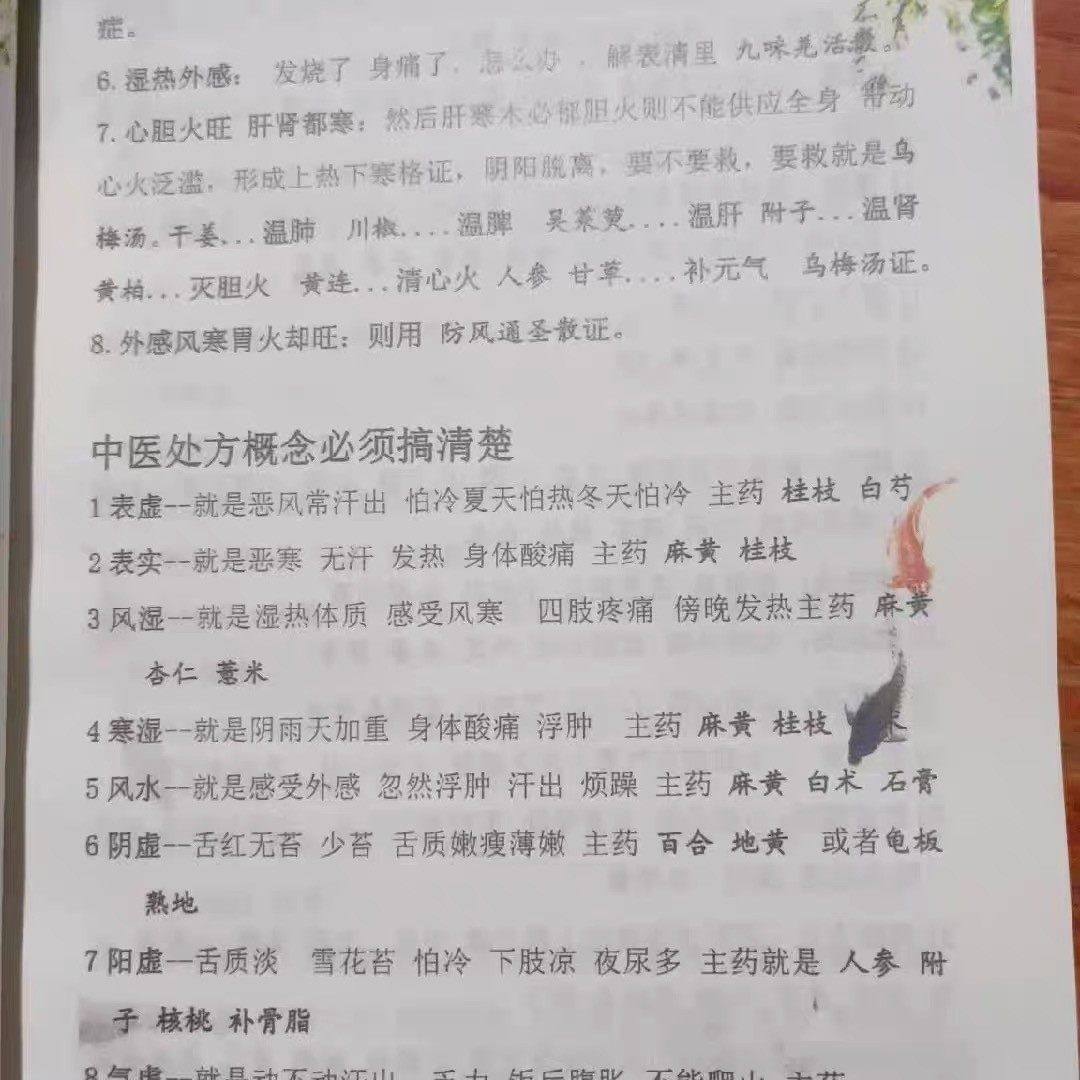 症。
6. 湿热外感： 发烧了 身痛了，怎么办 ，解表清里 九味羌活散。
7. 心胆火旺 肝肾都寒：然后肝寒木必郁胆火则不能供应全身 需动
心火泛滥，形成上热下寒格证，阴阳脱离，要不要救，要救就是乌
梅汤。干姜...温肺 川椒....温脾 吴茱萸....温肝 附子...温肾
黄柏...灭胆火 黄连...清心火 人参 甘草....补元气 乌梅汤证。
8. 外感风寒胃火却旺：则用 防风通圣散证。
中医处方概念必须搞清楚
1 表虚--就是恶风常汗出 怕冷夏天怕热冬天怕冷 主药 桂枝 白芍
2 表实--就是恶寒 无汗 发热 身体酸痛 主药 麻黄 桂枝
3 风湿--就是湿热体质 感受风寒 四肢疼痛 傍晚发热主药 麻黄
杏仁 薏米
4 寒湿--就是阴雨天加重 身体酸痛 浮肿 主药 麻黄 桂枝
5 风水--就是感受外感 忽然浮肿 汗出 烦躁 主药 麻黄 白术 石膏
6 阴虚--舌红无苔 少苔 舌质嫩瘦薄嫩 主药 百合 地黄 或者龟板
熟地
7 阳虚—舌质淡 雪花苔 怕冷 下肢凉 夜尿多 主药就是 人参 附
子 核桃 补骨脂
8 气虚--就是动不动汗出 乏力 饭后腹胀 不能爬山 主药